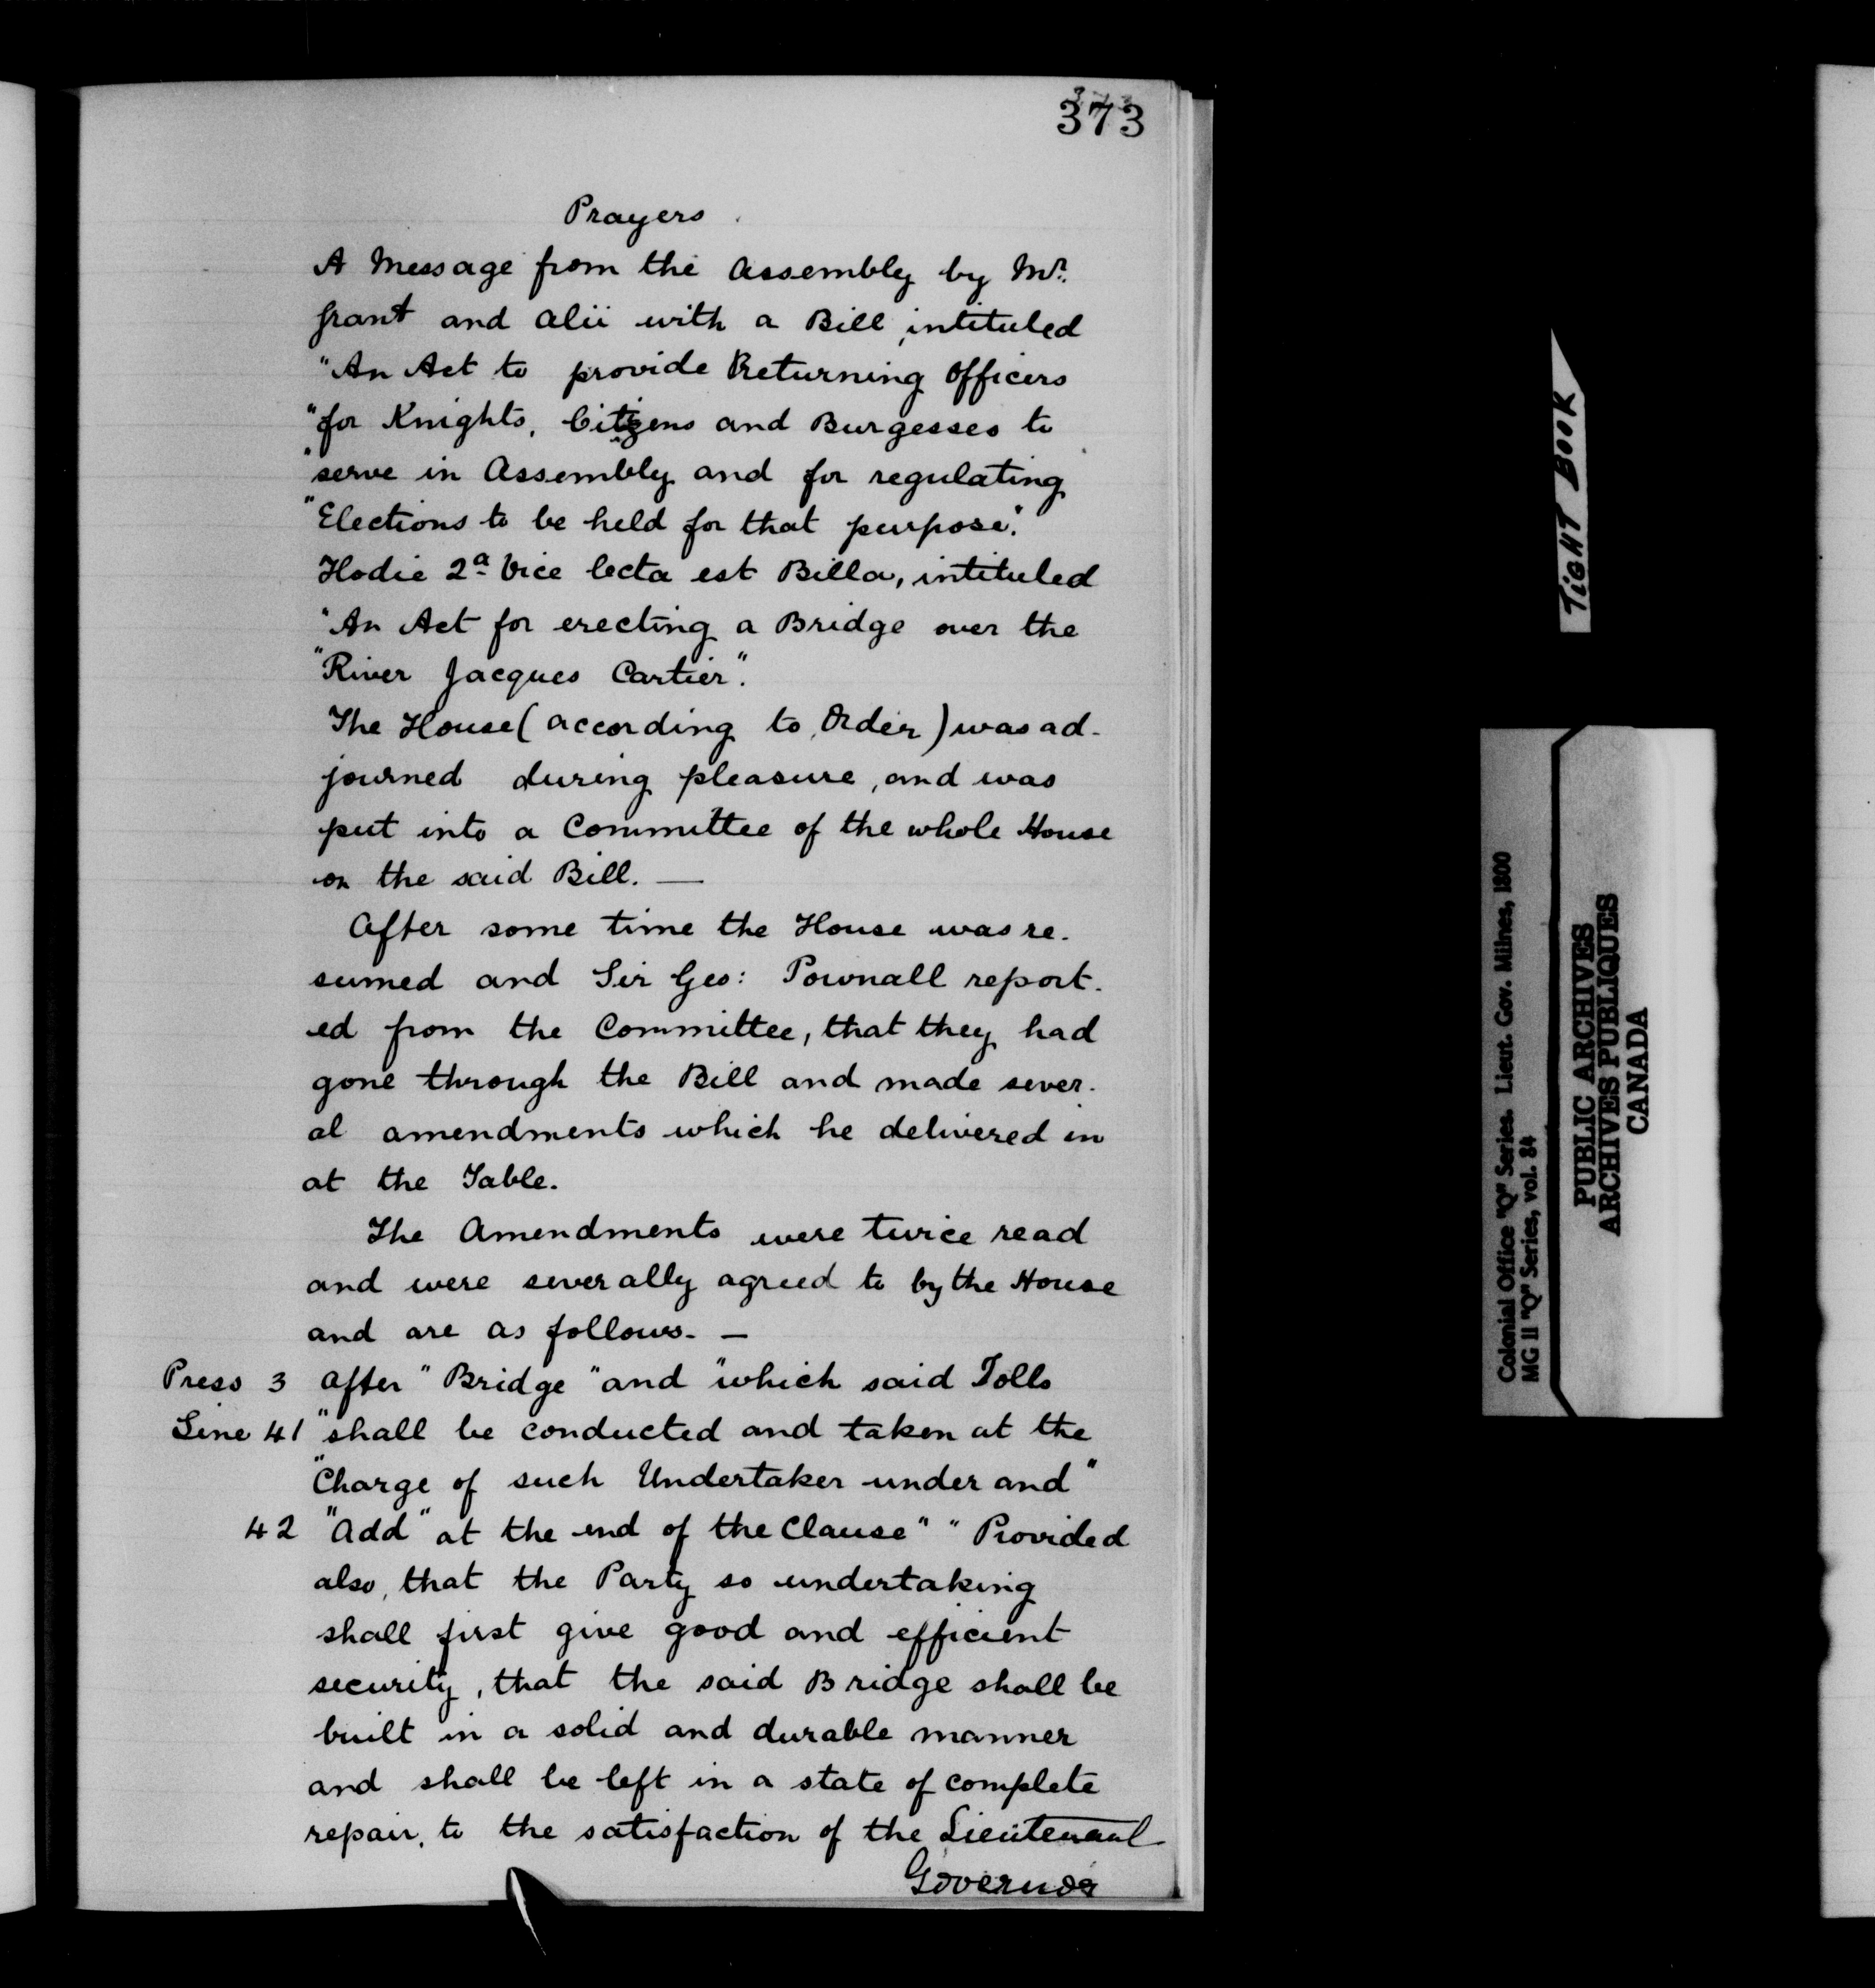 373
Prayers.
A Message from the Assembly by Mr.
Grant and alii with a Bill, intituled
"An Act to provide Returning Officers
"for Knights, Citizens and Burgesses to
"serve in Assembly and for regulating
"Elections to be held for that purpose".
Hodie 2a Vice lecta est Billa, intituled
"An Act for erecting a Bridge over the
"River Jacques Cartier".
The House (according to Order) was ad-
journed during pleasure, and was
put into a Committee of the whole House
on the said Bill. —
After some time the House was re-
sumed and Sir Geo: Pownall report-
ed from the Committee, that they had
gone through the Bill and made sever-
al amendments which he delivered in
at the Table.
The Amendments were twice read
and were severally agreed to by the House
and are as follows. —
Press 3 After "Bridge" and "which said Tolls
Line 41 "shall be conducted and taken at the
"Charge of such Undertaker under and"
42 "Add" at the end of the Clause" "Provided
also, that the Party so undertaking
shall first give good and efficient
security, that the said Bridge shall be
built in a solid and durable manner
and shall be left in a state of complete
repair, to the satisfaction of the Lieutenant
Governor
TIGHT BOOK
Colonial Office "Q" Series. Lieut. Gov. Milnes, 1800
MG 11 "Q" Series, vol. 84
PUBLIC ARCHIVES
ARCHIVES PUBLIQUES
CANADA